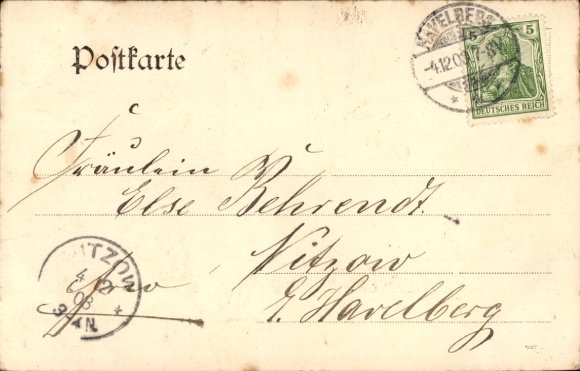 Postkarte
HAVELBERG
-4.12.03
5
DEUTSCHES REICH
Fräulein
Else Behrendt.
Nitzow
b. Havelberg
NITZOW
4
12
03